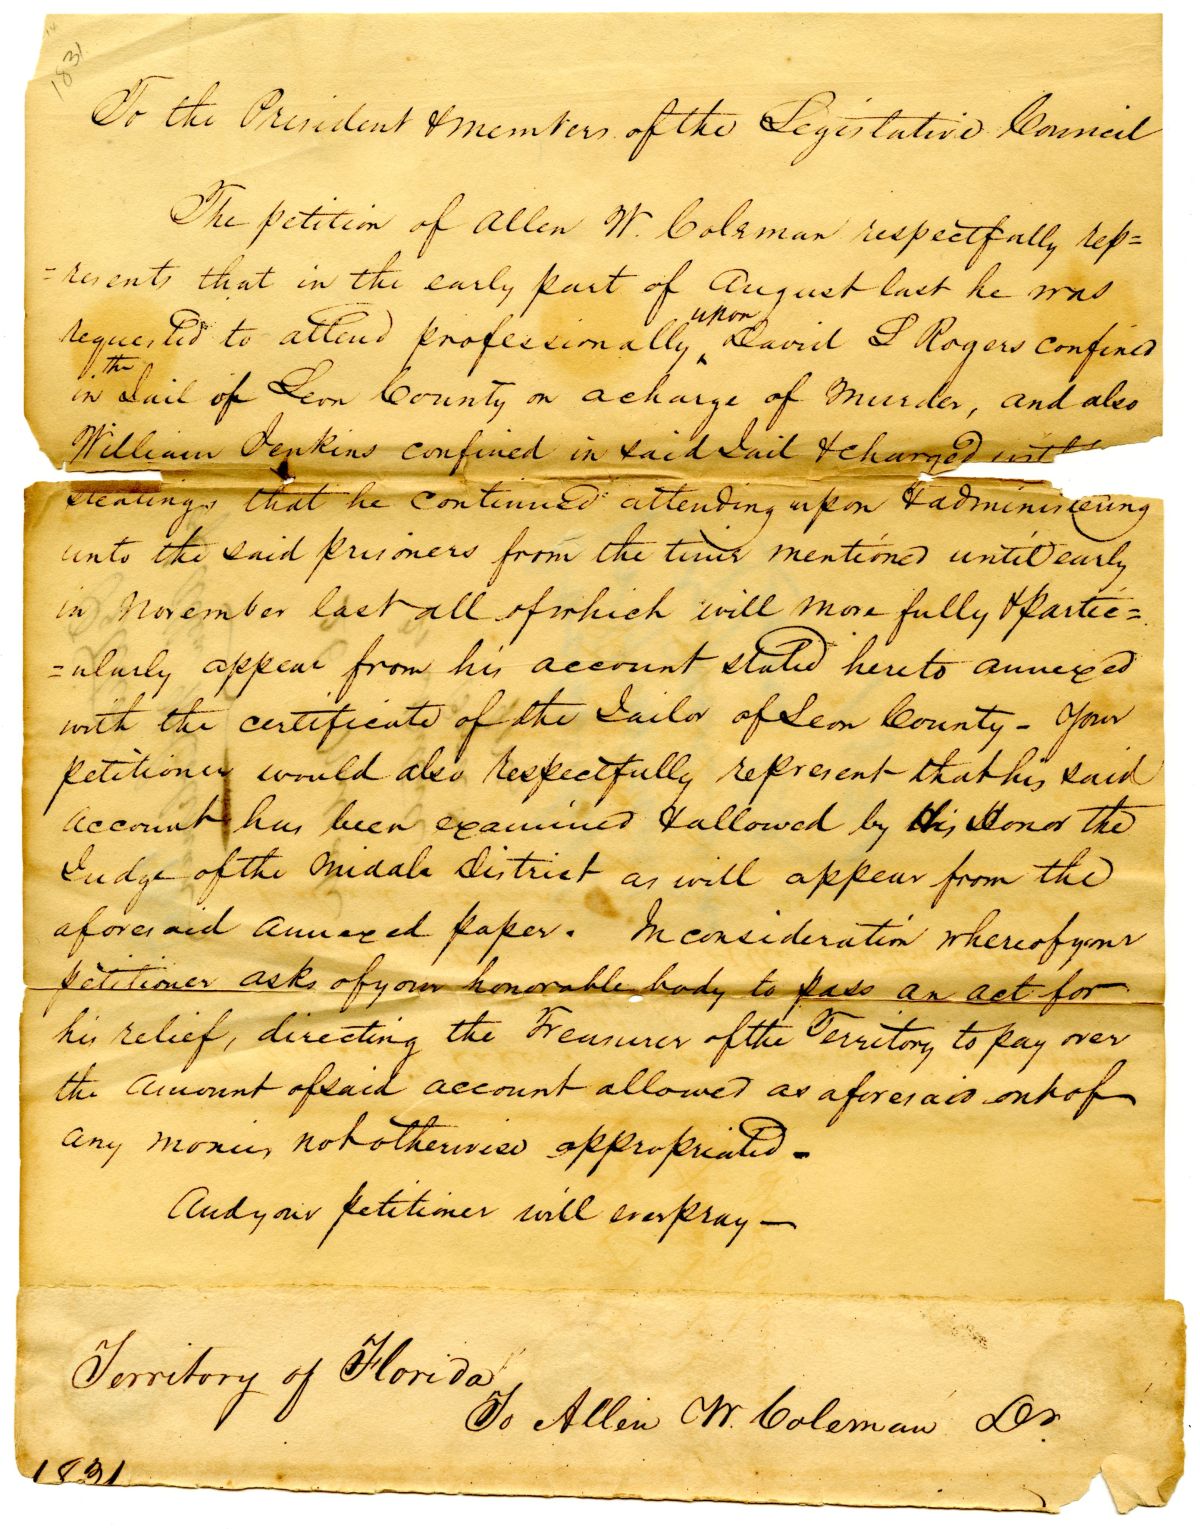 1831
To the President & members of the Legislative Council
The petition of Allen W. Coleman respectfully rep=
=resents that in the early part of August last he was
requested to attend professionally upon David L Rogers confined
in the Jail of Leon County on a charge of Murder, and also
William Jenkins confined in said Jail & charged with
stealing, that he continued attending upon & administering
unto the said prisoners from the time mentioned until early
in November last all of which will more fully & partic=
=ularly appear from his account stated hereto annexed
with the certificate of the Jailor of Leon County - Your
petitioner would also respectfully represent that his said
account has been examined & allowed by His Honor the
Judge of the Middle District as will appear from the
aforesaid annexed paper. In consideration whereof your
petitioner asks of your honorable body to pass an act for
his relief, directing the Treasurer of the Territory to pay over
the amount of said account allowed as aforesaid out of
any monies not otherwise appropriated -
And your petitioner will ever pray -
Territory of Florida
To Allen W. Coleman Dr.
1831